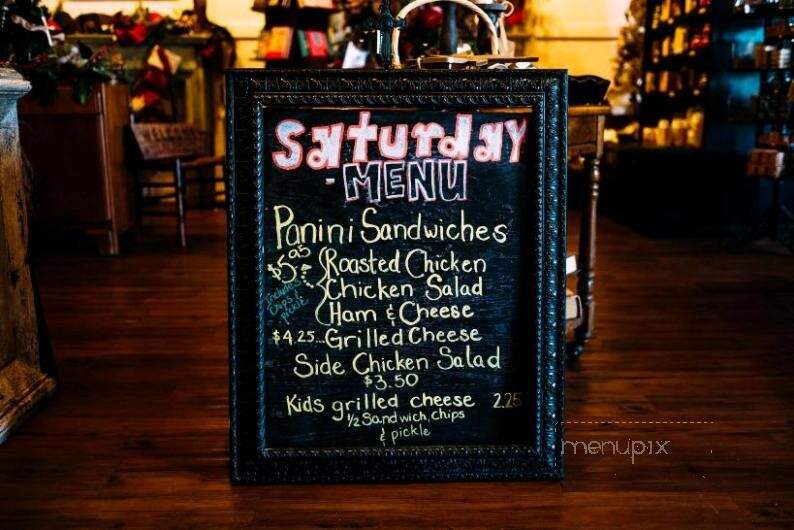 Saturday
-MENU
Panini Sandwiches
$5.95 { Roasted Chicken
Includes Chips & pickle
Chicken Salad
Ham & Cheese
$4.25...Grilled Cheese
Side Chicken Salad
$3.50
Kids grilled cheese 2.25
½ Sandwich, chips
& pickle
menupix